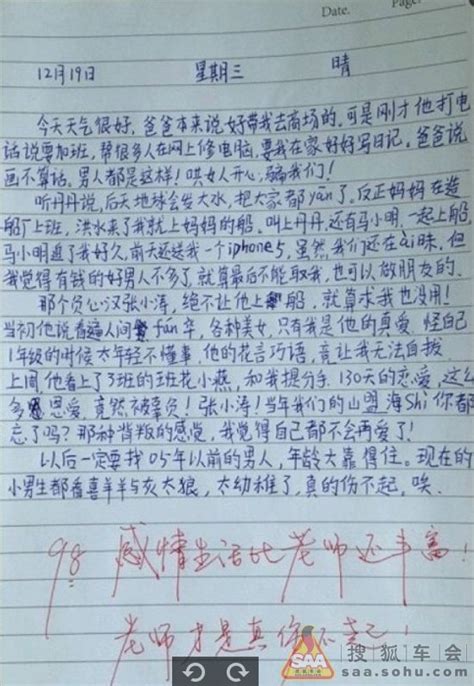 Date. Page.
12月19日 星期三 晴
今天天气很好，爸爸本来说好带我去商场的，可是刚才他打电
话说要加班，帮很多人在网上修电脑，要我在家好好写日记。爸爸说
画不算话。男人都是这样！哄女人开心，骗我们！
听丹丹说，后天地球会发大水，把大家都yān了。反正妈妈在造
船厂上班，洪水来了我就上妈妈的船。叫上丹丹，还有马小明，一起上船
马小明追了我好久，前天还送我一个iphone5，虽然我们还在ài昧，但
我觉得有钱的好男人不多了，就算最后不能取我，也可以做朋友的。
那个负心汉张小涛，绝不让他上船，就算求我也没用！
当初他说看遍人间fán华，各种美女，只有我是他的真爱。怪自己
1年级的时候太年轻不懂事，他的花言巧语，竟让我无法自拔。
上周他看上了3班的班花小燕，和我提分手。130天的恋爱，这么
多恩爱，竟然被辜负！张小涛！当年我们的山盟海Shi你都
忘了吗？那种背叛的感觉，我觉得自己都不会再爱了！
以后一定要找05年以前的男人，年龄大靠得住。现在的
小男生都看喜羊羊与灰太狼，太幼稚了，真的伤不起，唉。
98 感情生活比老师还丰富！
老师才是真伤不起！
SAA 搜狐车会
saa.sohu.com